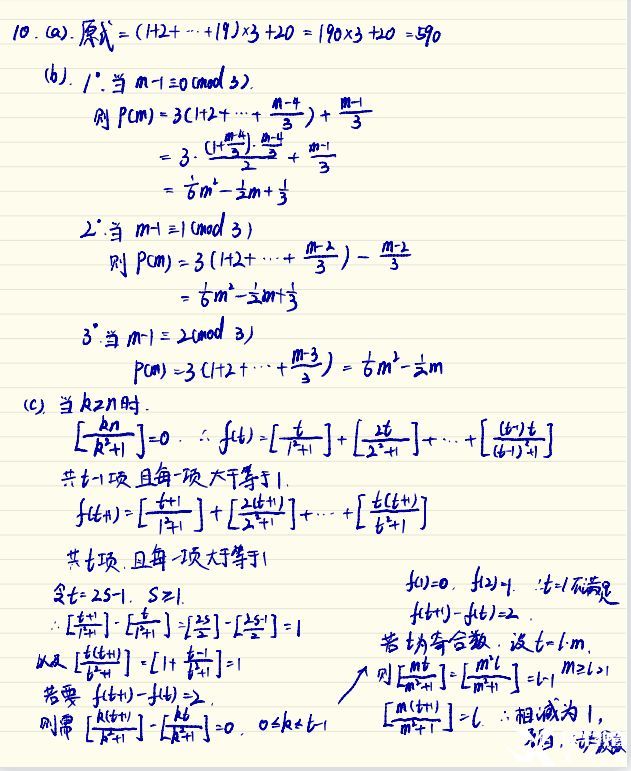 10. (a). 原式 = (1+2+ ⋯ +19)×3+20 = 190×3+20 = 590
(b). 1°. 当 m-1≡0(mod 3).
则 P(m) = 3(1+2+ ⋯ + (m-4)/3) + (m-1)/3
= 3 · ((1+(m-4)/3) · (m-4)/3)/2 + (m-1)/3
= 1/6 m² - 1/2 m + 1/3
2°. 当 m-1≡1(mod 3)
则 P(m) = 3(1+2+ ⋯ + (m-2)/3) - (m-2)/3
= 1/6 m² - 1/2 m + 1/3
3° 当 m-1≡2(mod 3)
P(m) = 3(1+2+ ⋯ + (m-3)/3) = 1/6 m² - 1/2 m
(c) 当 k≥n 时.
[kn/(k²+1)] = 0. ∴ f(t) = [t/(1²+1)] + [2t/(2²+1)] + ⋯ + [(t-1)t/((t-1)²+1)]
共 t-1 项 且每一项 大于等于 1.
f(t+1) = [(t+1)/(1²+1)] + [2(t+1)/(2²+1)] + ⋯ + [t(t+1)/(t²+1)]
共 t 项. 且每一项大于等于 1
令 t = 2s-1. s≥1.
∴ [(t+1)/(1²+1)] - [t/(1²+1)] = [2s/2] - [(2s-1)/2] = 1
以及 [t(t+1)/(t²+1)] = [1 + (t-1)/(t²+1)] = 1
若要 f(t+1) - f(t) = 2.
则需 [k(t+1)/(k²+1)] - [kt/(k²+1)] = 0. 0≤k≤t-1
f(1)=0. f(2)=1. ∴ t=1 不满足
f(t+1) - f(t) = 2.
若 t 为奇合数. 设 t = l·m.
则 [mt/(m²+1)] = [m²l/(m²+1)] = l-1 m≥l>1
[m(t+1)/(m²+1)] = l. ∴ 相减为 1,